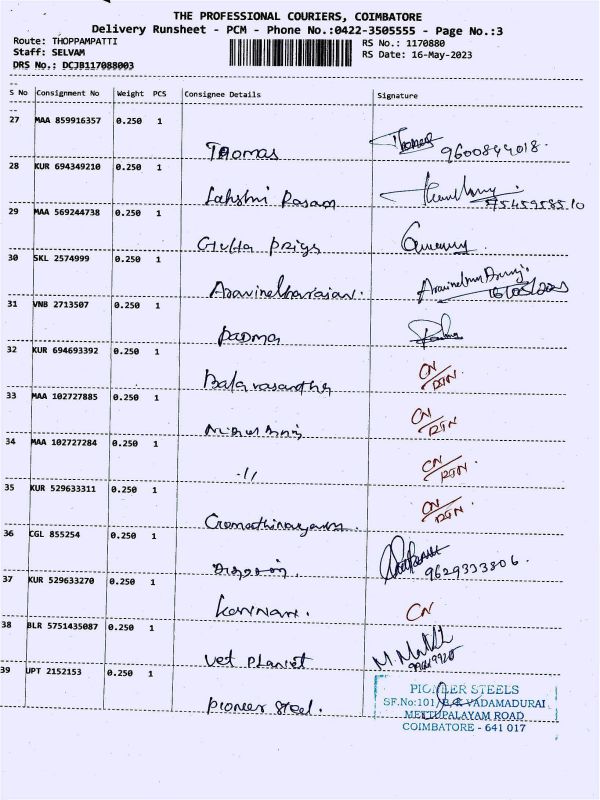 THE PROFESSIONAL COURIERS, COIMBATORE
Delivery Runsheet - PCM - Phone No.:0422-3505555 - Page No.:3
Route: THOPPAMPATTI
Staff: SELVAM
DRS No.: DCJB117088003
RS No.: 1170880
RS Date: 16-May-2023
S No Consignment No Weight PCS Consignee Details Signature
27 MAA 859916357 0.250 1
Thomas 9600844018.
28 KUR 694349210 0.250 1
Lakshmi
29 MAA 569244738 0.250 1
Priya
30 SKL 2574999 0.250 1
Aravindharajan. 16/05/2023
31 VNB 2713507 0.250 1
Padma
32 KUR 694693392 0.250 1
Bala vasantha CN/RTN
33 MAA 102727885 0.250 1
CN/RTN
34 MAA 102727284 0.250 1
-11 CN/RTN
35 KUR 529633311 0.250 1
CN/RTN
36 CGL 855254 0.250 1
9629333806.
37 KUR 529633270 0.250 1
Kannan. CN
38 BLR 5751435087 0.250 1
Vet Planet
39 UPT 2152153 0.250 1
Pioneer Steel.
PIONEER STEELS
SF.No:101/ VADAMADURAI
METTUPALAYAM ROAD
COIMBATORE - 641 017